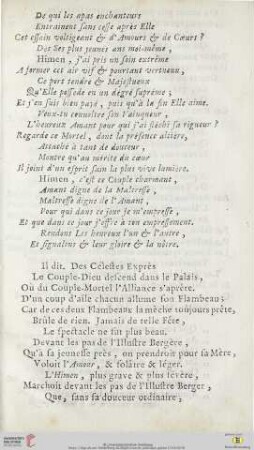 De qui les apas enchanteurs
Entrainent sans cesse après Elle
Cet essain voltigeant & d'Amours & de Cœurs ?
Dès Ses plus jeunes ans moi-même,
Himen, j'ai pris un soin extrême
A former cet air vif & pourtant vertueux,
Ce port tendre & Majestueux
Qu'Elle possede en un degré suprême ;
Et j'en suis bien payé, puis qu'à la fin Elle aime.
Veux-tu connoître son Vainqueur,
L'heureux Amant pour qui j'ai fléchi sa rigueur ?
Regarde ce Mortel, dont la présence altiére,
Attache à tant de douceur,
Montre qu'au mérite du cœur
Il joint d'un esprit sain la plus vive lumiére.
Himen, c'est ce Couple charmant,
Amant digne de la Maîtresse,
Maîtresse digne de l'Amant,
Pour qui dans ce jour je m'empresse,
Et que dans ce jour j'offre à ton empressement.
Rendons Les heureux l'un & l'autre,
Et signalons & leur gloire & la nôtre.
Il dit. Des Célestes Exprès
Le Couple-Dieu descend dans le Palais,
Où du Couple-Mortel l'Alliance s'aprête.
D'un coup d'aîle chacun allume son Flambeau;
Car de ces deux Flambeaux la mèche toûjours prête,
Brûle de rien. Jamais de telle Fête,
Le spectacle ne fut plus beau.
Devant les pas de l'Illustre Bergére,
Qu'à sa jeunesse près, on prendroit pour sa Mère,
Voloit l'Amour, & folâtre & léger.
L'Himen, plus grave & plus sévère,
Marchoit devant les pas de l'Illustre Berger,
Que, sans sa douceur ordinaire,